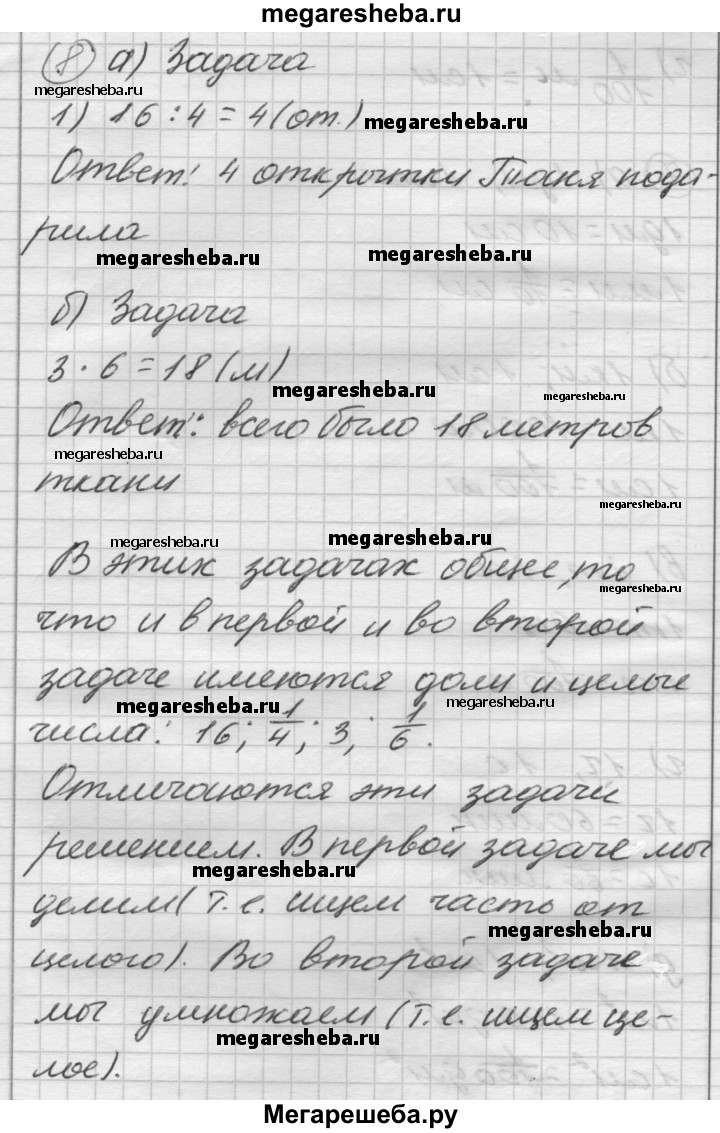 megaresheba.ru
8 а) Задача
megaresheba.ru
1) 16 : 4 = 4 (от.)
megaresheba.ru
Ответ: 4 открытки Таня пода-
рила
megaresheba.ru
megaresheba.ru
б) Задача
3 · 6 = 18 (м)
megaresheba.ru
megaresheba.ru
Ответ: всего было 18 метров
megaresheba.ru
ткани
megaresheba.ru
megaresheba.ru
megaresheba.ru
В этих задачах общее, то
megaresheba.ru
что и в первой и во второй
задаче имеются доли и целые
megaresheba.ru
megaresheba.ru
числа: 16; 1/4; 3; 1/6.
Отличаются эти задачи
решением. В первой задаче мы
megaresheba.ru
делим (т.е. ищем часть от
megaresheba.ru
целого). Во второй задаче
мы умножаем (т.е. ищем це-
megaresheba.ru
лое).
Мегарешеба.ру